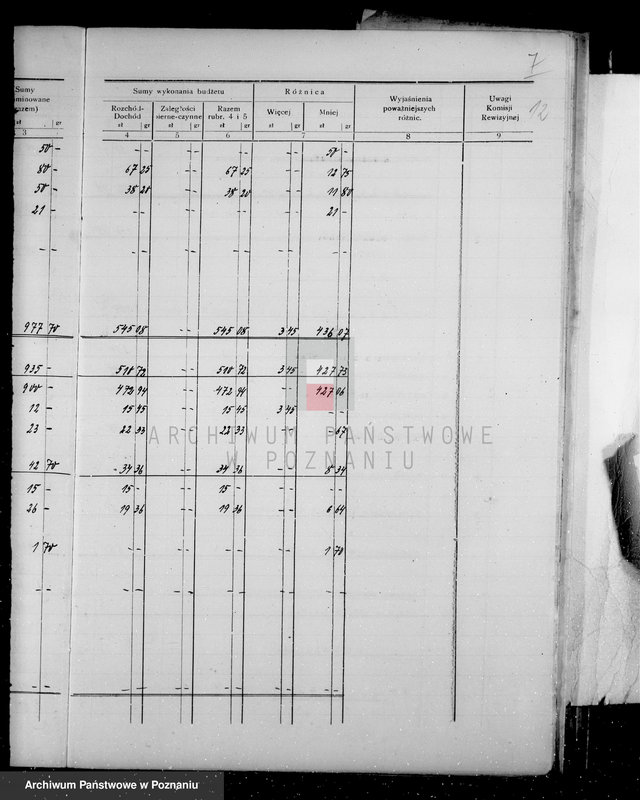 7
12
Sumy
minowane
razem)
zł gr
3
Sumy wykonania budżetu
Rozchód-Dochód
zł gr
4
Zaległości bierne-czynne
zł gr
5
Razem rubr. 4 i 5
zł gr
6
Różnica
Więcej
zł gr
Mniej
zł gr
7
Wyjaśnienia poważniejszych różnic.
8
Uwagi Komisji Rewizyjnej
9
50 - - - - - - - - - 50 -
80 - 67 25 - - 67 25 - - 12 75
50 - 38 20 - - 38 20 - - 11 80
21 - - - - - - - - - 21 -
- - - - - - - - - - - -
977 70 545 08 - - 545 08 3 45 436 07
935 - 510 72 - - 510 72 3 45 427 73
900 - 472 94 - - 472 94 - - 427 06
12 - 15 45 - - 15 45 3 45 - -
23 - 22 33 - - 22 33 - - - 67
42 70 34 36 - - 34 36 - - 8 34
15 - 15 - - - 15 - - - - -
26 - 19 36 - - 19 36 - - 6 64
1 70 - - - - - - - - 1 70
- - - - - - - - - - - -
- - - - - - - - - - - -
ARCHIWUM PAŃSTWOWE
W POZNANIU
Archiwum Państwowe w Poznaniu